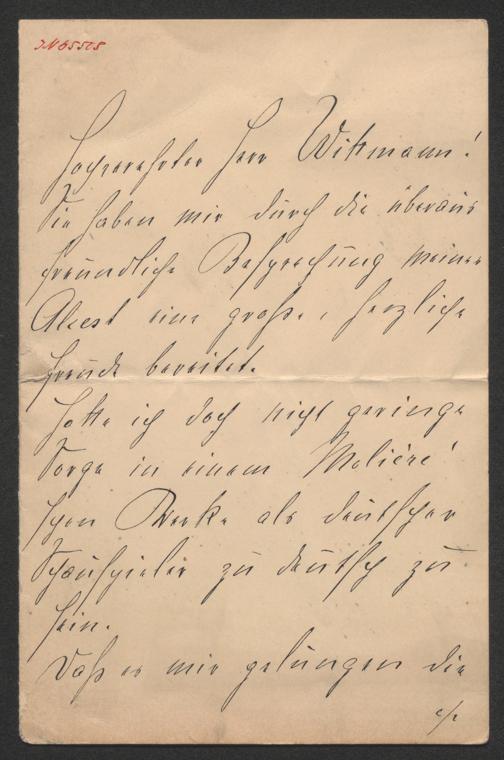 JN 65505
Hochverehrter Herr Wittmann!
Sie haben mir durch die überaus
freundliche Besprechung meines
Alcest eine große, herzliche
Freude bereitet.
Hatte ich doch nicht geringe
Sorge in einem Molière'
schen Werke als deutscher
Schauspieler zu deutsch zu
sein.
Daß es mir gelungen die